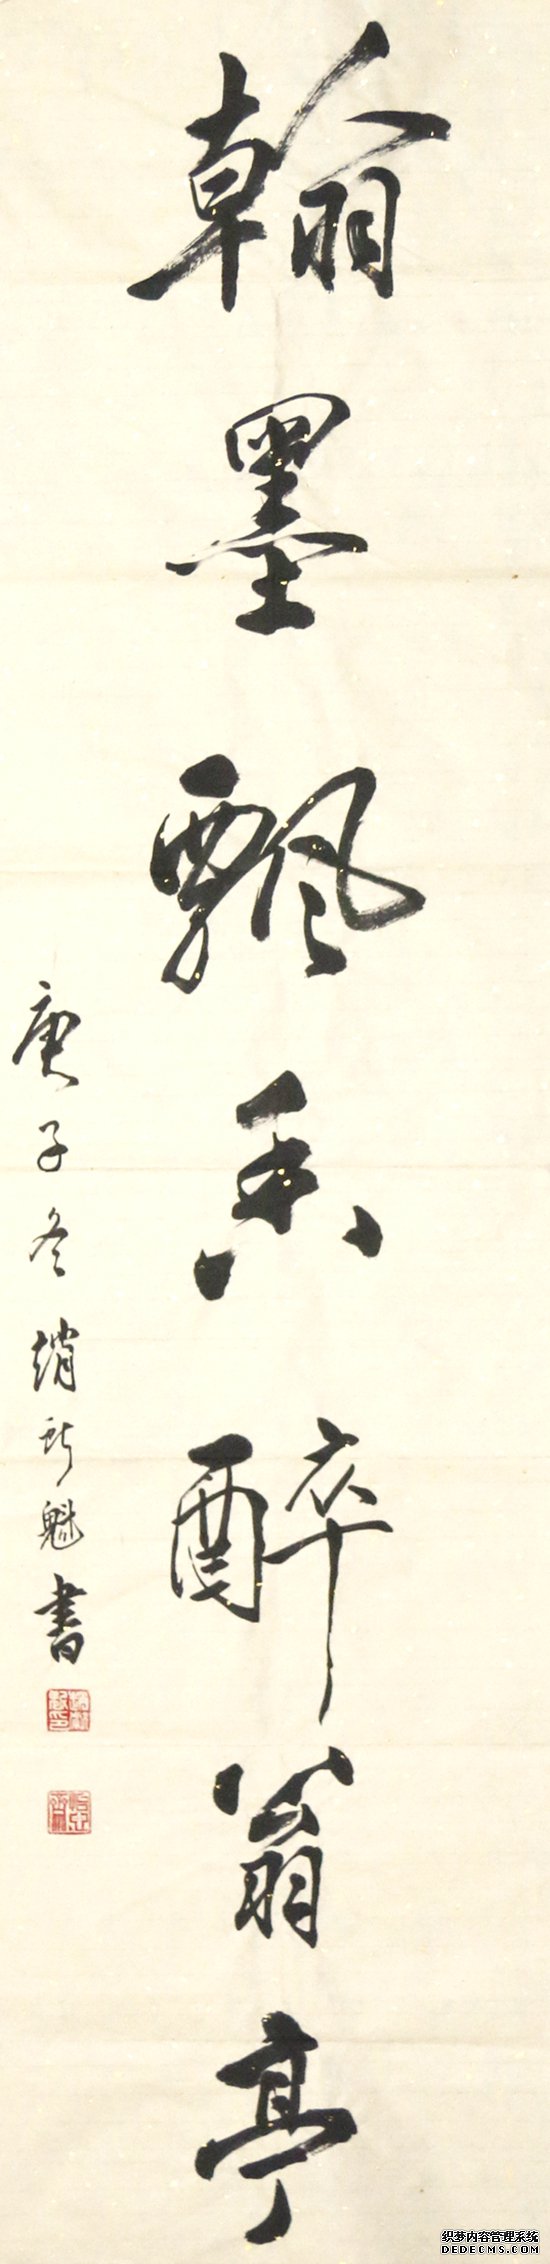 翰墨飘香醉翁亭
庚子冬趙新魁書
织梦内容管理系统
DEDECMS.COM